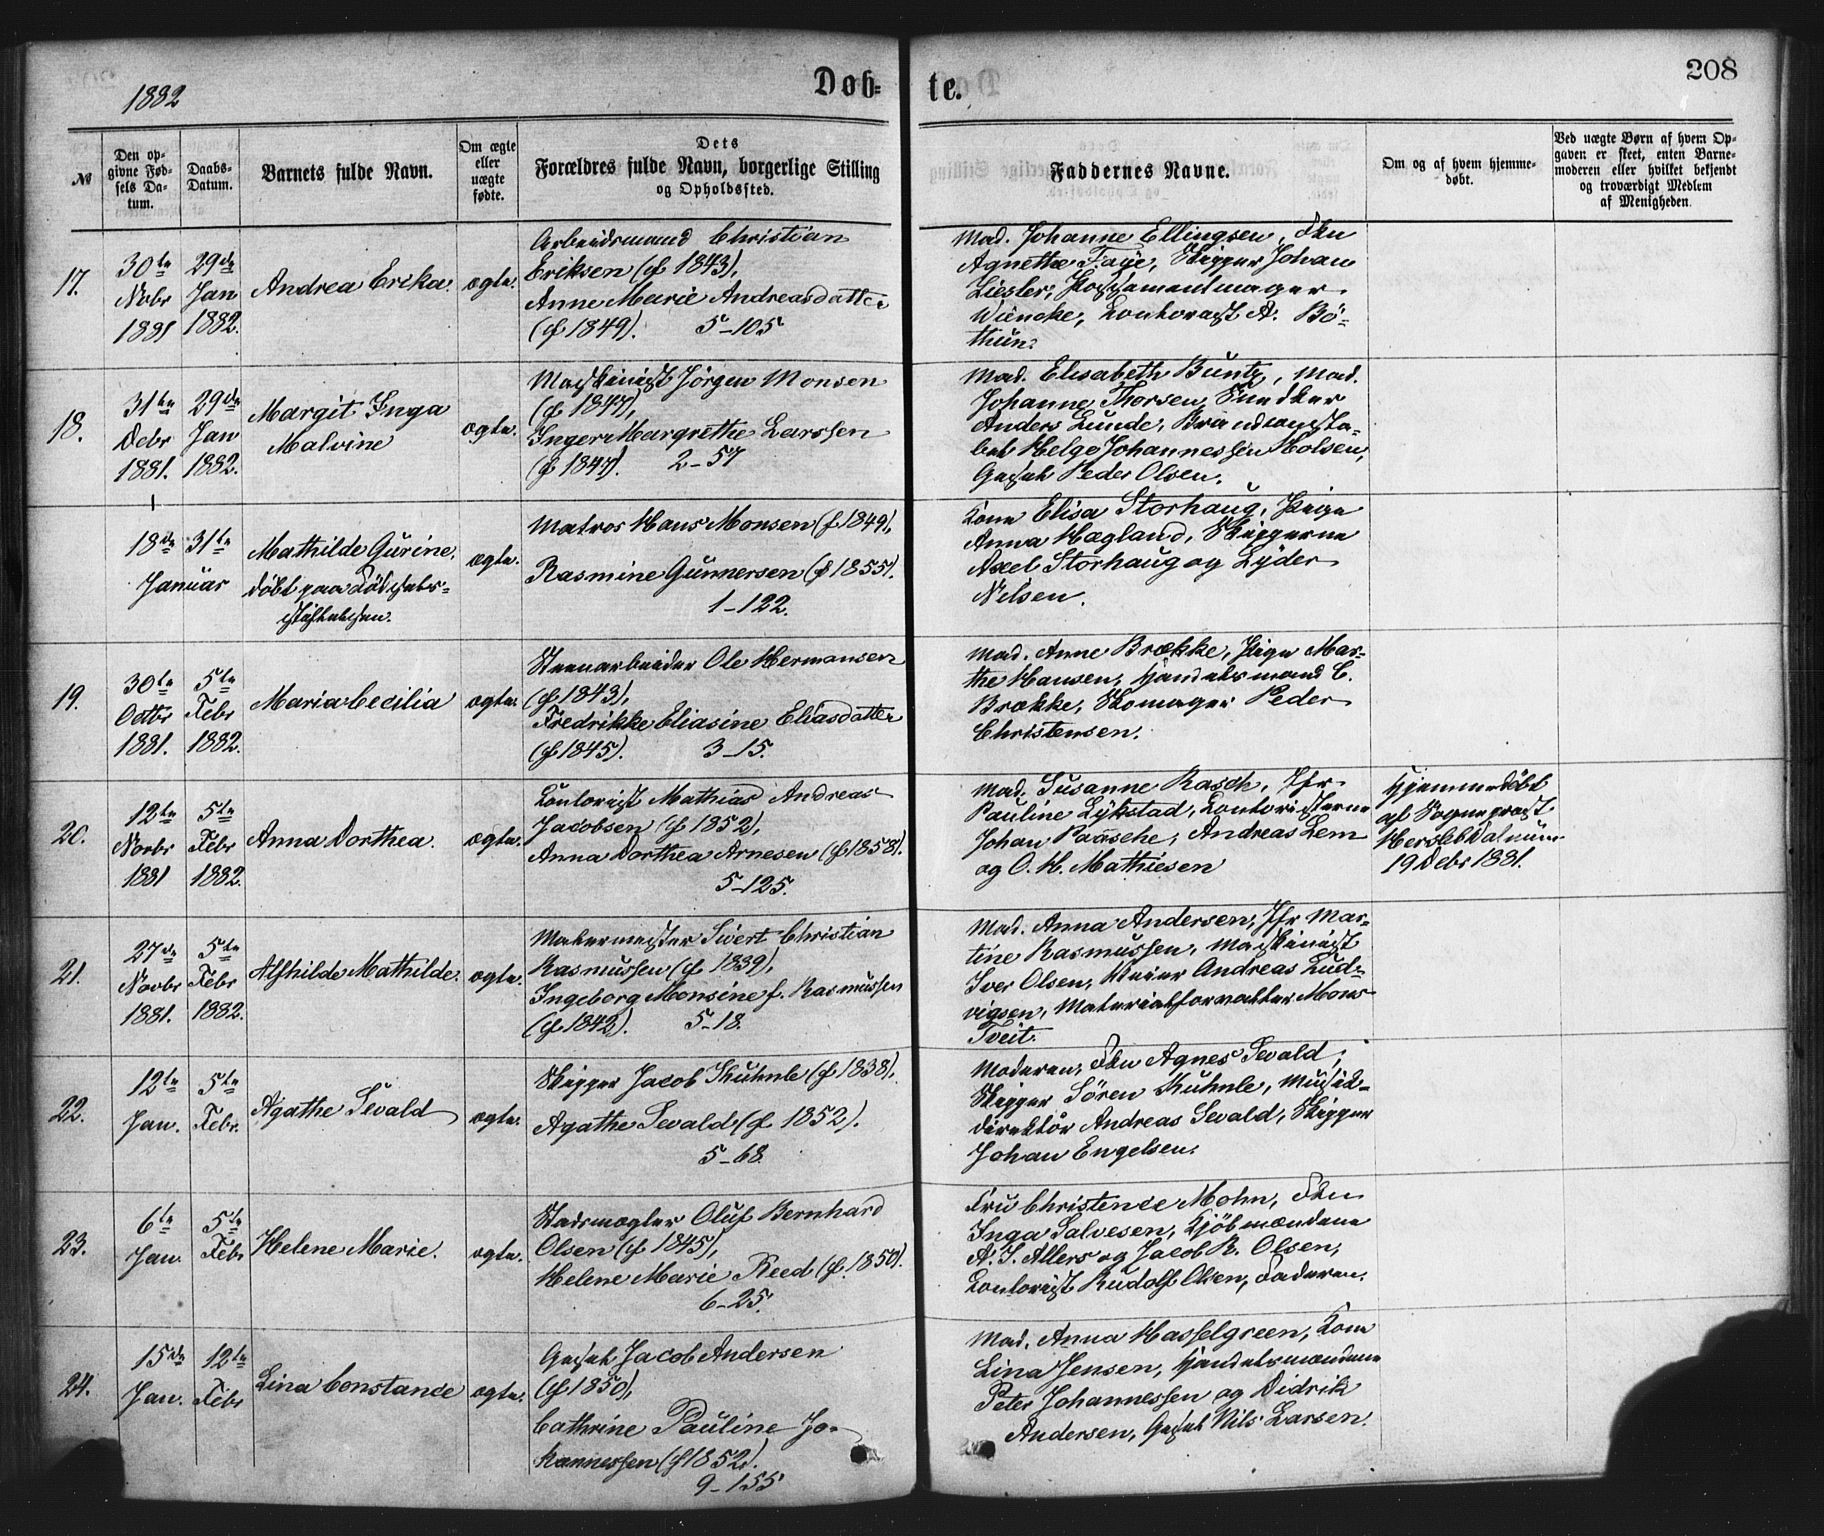 1882
Døb-
te.
208
№
Den op-
givne Fød-
sels Da-
tum.
Daabs-
Datum.
Barnets fulde Navn.
Om ægte
eller
uægte
fødte.
Dets
Forældres fulde Navn, borgerlige Stilling
og Opholdssted.
Faddernes Navne.
Om og af hvem hjemme-
døbt.
Ved uægte Børn af hvem Op-
gaven er skeet, enten Barne-
moderen eller hvilket bekjendt
og troværdigt Medlem
af Menigheden.
17.
30te
Nvbr
1881
29de
Jan
1882.
Andrea Erika.
ægte.
Arbeidsmand Christian
Eriksen (f 1843),
Anne Marie Andreasdatter
(f 1849). 5-105
Mad. Johanne Ellingsen, Frkn
Agnethe Faye, Skipper Johan
Ziesler, Possementmager
Wiencke, Contorist A. Bö-
thun.
18.
31te
Debr
1881.
29de
Jan
1882.
Margit Inga
Malvine
ægte.
Maskinist Jörgen Monsen
(f 1847),
Inger Margrethe Larssen
(f 1847). 2-57
Mad. Elisabeth Buntz, Mad.
Johanne Thorsen, Snedker
Anders Lunde, Brandconsta-
bel Helge Johannessen Molsen,
Gaselt Peder Olsen.
18de
Januar
31te
Mathilde Gurine.
döbt paa Födsels-
stiftelsen.
ægte.
Matros Hans Monsen (f. 1849),
Rasmine Gunnersen (f 1855).
1-122.
Kone Elisa Storhaug, Pige
Anna Hægland, Skipperne
Axel Storhaug og Lyder
Nilsen.
19.
30te
Octbr
1881.
5te
Febr
1882.
Maria Cecilia
ægte.
Steenarbeider Ole Hermansen
(f 1843),
Fredrikke Eliasine Eliasdatter
(f 1845). 3-15.
Mad. Anne Brække, Pige Mar-
the Hansen, Handelsmand C.
Brække, Skomager Peder
Christensen.
20.
12te
Novbr
1881
5te
Febr
1882.
Anna Dorthea.
ægte.
Contorist Mathias Andreas
Jacobsen (f 1852),
Anna Dorthea Arnesen (f 1858).
5-125.
Mad. Susanne Rasch, Jfr
Pauline Lykstad, Contoristerne
Johan Paasche, Andreas Lem
og O. H. Mathiesen
Hjemmedöbt
af Sogneprost
Hersleb Dalum
19 Debr 1881.
21.
27de
Novbr
1881.
5te
Febr
1882.
Alfhilde Mathilde.
ægte.
Malermester Sivert Christian
Rasmussen (f 1839),
Ingeborg Monsine f. Rasmussen
(f 1842). 5-18.
Mad. Anna Andersen, Jfr Mar-
tine Rasmussen, Maskinist
Iver Olsen, Andreas Lud-
vigsen, Materialforvalter Mons
Tveit.
22.
12te
Jan.
5te
Febr.
Agathe Sevald
ægte.
Skipper Jacob Kuhnle (f 1838),
Agathe Sevald (f 1852).
5-68.
Moderen, Frkn Agnes Sevald,
Skipper Sören Kuhnle, Musik-
direktör Andreas Sevald, Skipper
Johan Engelsen.
23.
6te
Jan.
5te
Febr
Helene Marie.
ægte.
Stadsmægler Oluf Bernhard
Olsen (f 1845),
Helene Marie Reed (f. 1850).
6-25.
Fru Christence Mohn, Frkn
Inga Salvesen, Kjöbmændene
A. J. Allers og Jacob R. Olsen,
Contorist Rudolf Olsen, Faderen.
24.
15de
Jan.
12te
Febr
Lina Constance
ægte.
Jacob Andersen
(f 1850),
Cathrine Pauline Jo-
hannessen (f 1852).
9-155
Mad. Anna Hasselgreen, Kone
Lina Jensen, Handelsmændene
Peter Johannessen og Didrik
Andersen, Nils Larsen.